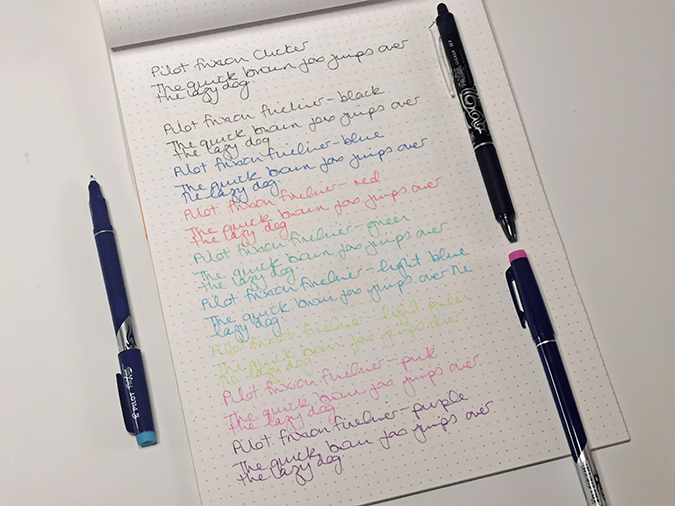 Pilot frixion Clicker
The quick brown fox jumps over
the lazy dog.
Pilot frixion fineliner - black
The quick brown fox jumps over
the lazy dog
Pilot frixion fineliner - blue
The quick brown fox jumps over
the lazy dog.
Pilot frixion fineliner - red
The quick brown fox jumps over
the lazy dog
Pilot frixion fineliner - green
The quick brown fox jumps over
the lazy dog
Pilot frixion fineliner - light blue
The quick brown fox jumps over the
lazy dog.
Pilot frixion fineliner - light green
The quick brown fox jumps over
the lazy dog.
Pilot frixion fineliner - pink
The quick brown fox jumps over
the lazy dog.
Pilot frixion fineliner - purple
The quick brown fox jumps over
the lazy dog.